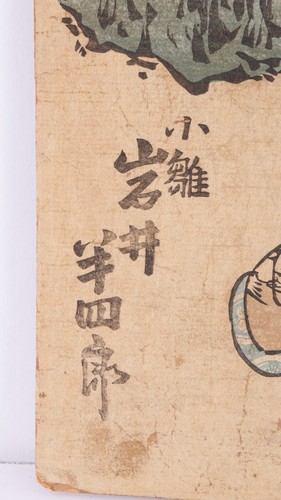 小雛
岩井
半四郎